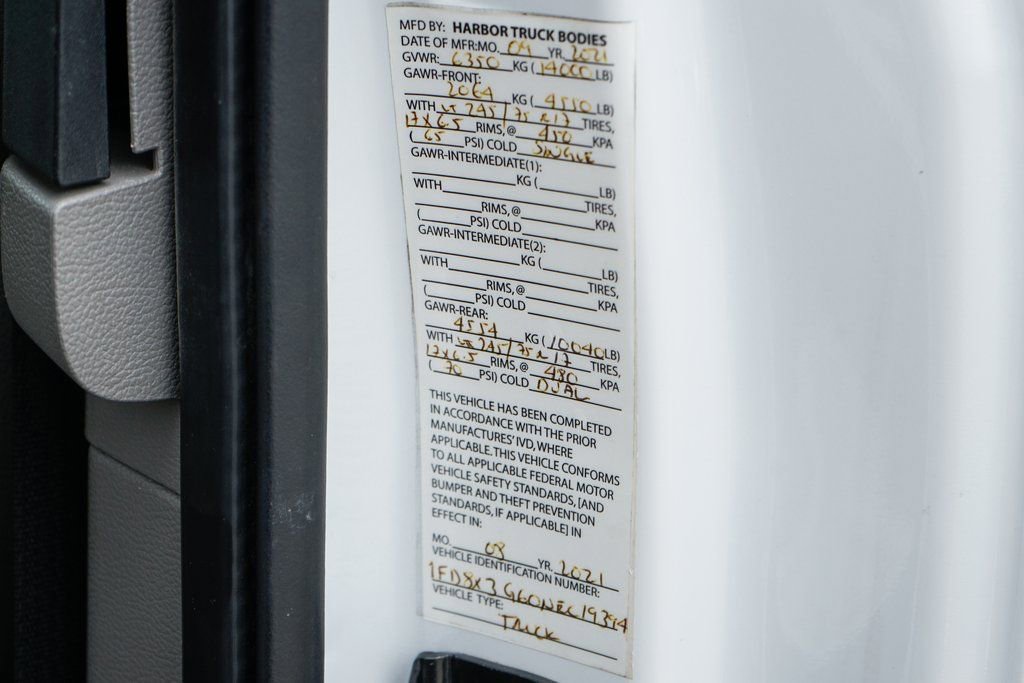 MFD BY: HARBOR TRUCK BODIES
DATE OF MFR:MO. 04 YR. 2021
GVWR: 6350 KG ( 14000 LB)
GAWR-FRONT:
2064 KG ( 4550 LB)
WITH LT 245/75 R 17 TIRES,
17x6.5 RIMS, @ 450 KPA
( 65 PSI) COLD SINGLE
GAWR-INTERMEDIATE(1):
KG ( LB)
WITH TIRES,
RIMS, @ KPA
( PSI) COLD
GAWR-INTERMEDIATE(2):
KG ( LB)
WITH TIRES,
RIMS, @ KPA
( PSI) COLD
GAWR-REAR:
4554 KG ( 10040 LB)
WITH LT 245/75 R 17 TIRES,
17x6.5 RIMS, @ 480 KPA
( 70 PSI) COLD DUAL
THIS VEHICLE HAS BEEN COMPLETED
IN ACCORDANCE WITH THE PRIOR
MANUFACTURES' IVD, WHERE
APPLICABLE. THIS VEHICLE CONFORMS
TO ALL APPLICABLE FEDERAL MOTOR
VEHICLE SAFETY STANDARDS, [AND
BUMPER AND THEFT PREVENTION
STANDARDS, IF APPLICABLE] IN
EFFECT IN:
MO. 08 YR. 2021
VEHICLE IDENTIFICATION NUMBER:
1FD8X3G60NEC19394
VEHICLE TYPE:
TRUCK